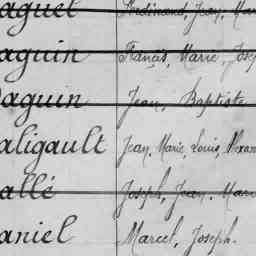 aguet Ferdinand, Jean, Mar
aguin Francis, Marie, Josep
aguin Jean, Baptiste
aligault Jean, Marie, Louis, Alexan
allé Joseph, Jean, Marie
aniel Marcel, Joseph.